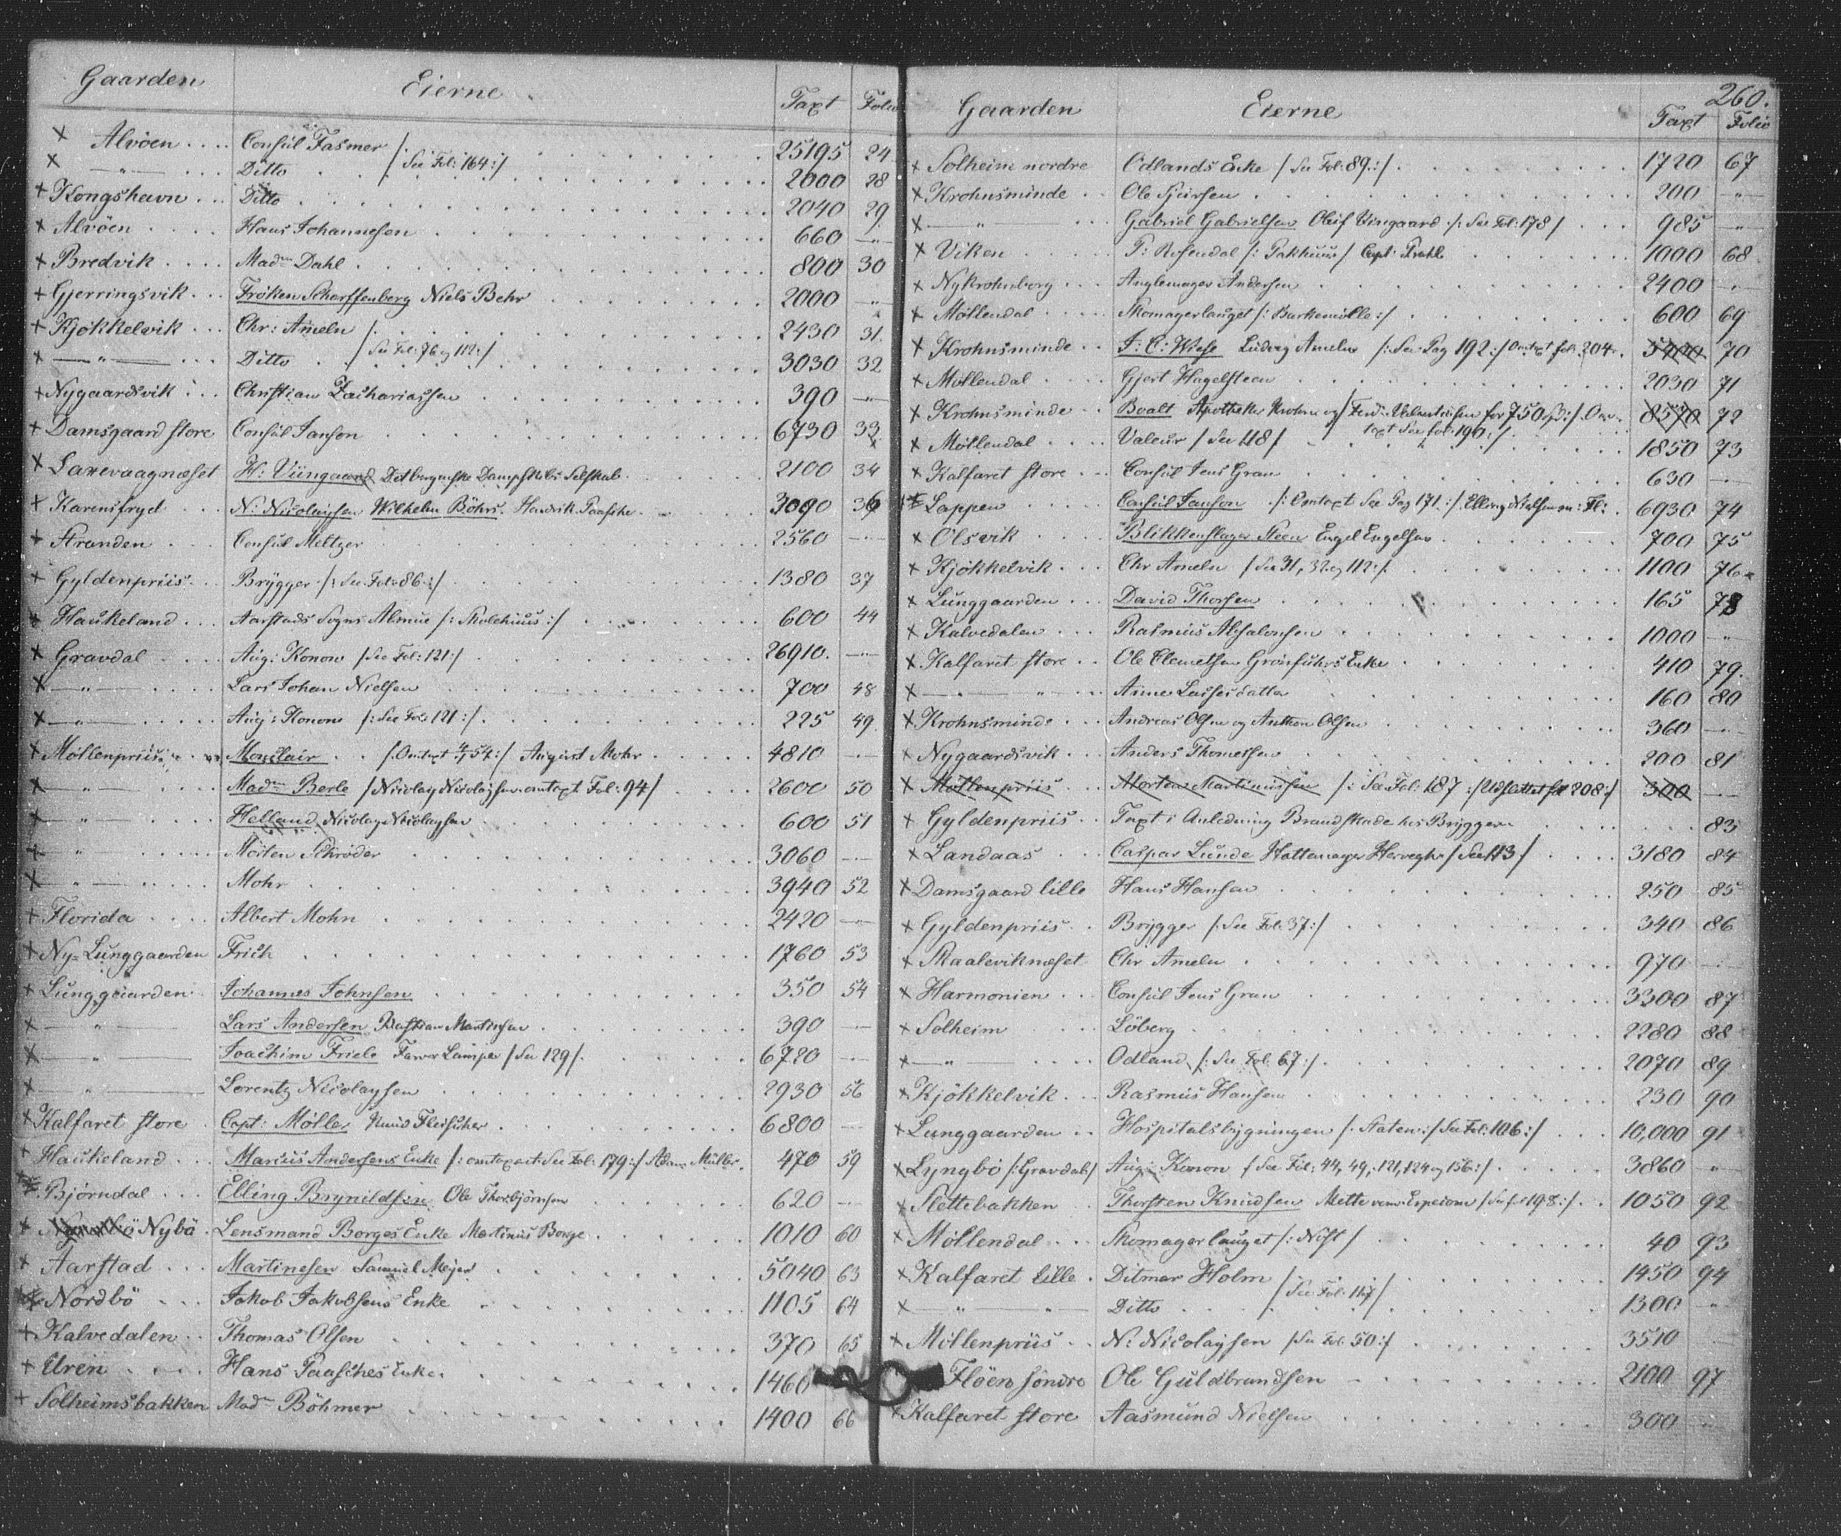 Gaarden Eierne Taxt Folio
× Alvöen .... Consul Fasmer /: See Fol: 164:/ 25195 24
× — " — ... Ditto 2000 28
× Kongshavn ... Ditto 2040 29
× Alvöen .... Hans Johannesen 660 — " —
× Bredvik .... Madm Dahl 800 30
× Gjerringsvik ... Fröken Scharffenberg Niels Behr 2000 — " —
× Kjökkelvik ... Chr: Ameln /: See Fol: 76 og 112:/ 2430 31
× — " — ... Ditto 3030 32
× Nygaardsvik ... Christian Zachariassen 390 — " —
× Damsgaard store Consul Janson 6730 33
× Laxevaagnæset H: Viingaard Det bergenske Dampskibs Selskab 2100 34
× Karensfryd ... N: Nicolaysen Wilhelm Böhrs. Hendrik Paasche 3090 36
× Stranden ... Consul Meltzer 2560 — " —
× Gyldenpriis ... Brygger /: See Fol: 86:/ 1380 37
× Haukeland ... Aarstads Sogns Almue /: Skolehuus:/ 600 44
× Gravdal .... Aug: Konow /See Fol: 121:/ 26910 — " —
× — " — .... Lars Johan Nielsen 700 48
× — " — .... Aug: Konow /: See Fol: 121:/ 225 49
× Möllenpriis ... Monclair /: Omtaxt 54:/ August Mohr 4810 — " —
× — " — .... Madm Berle /Nicolay Nicolaysen omtaxt Fol: 94/ 2600 50
× — " — .... Helland Nicolay Nicolaysen 600 51
× — " — .... Morten Schröder 3060 — " —
× — " — .... Mohr 3940 52
× Florida .... Albert Mohn 2420 — " —
× Ny-Lunggaarden Frich 1760 53
× Lunggaarden Johannes Johnsen 350 54
× — " — Lars Andersen Bastian Martinsen 390 — " —
× — " — Joachim Friele Farver Lampe /See 129/ 6720 — " —
× — " — Lorentz Nicolaysen 2930 56
× Kalfaret store Capt: Möller Knud Fleischer 6800 — " —
× Haukeland ... Marcus Andersens Enke /: omtaxert See Fol: 179:/ Müller 470 59
× Bjørndal ... Elling Brynildsen Ole Thorbjörnsen 620 — " —
× Nybö Lensmand Borges Enke Martinus Borge 1010 60
× Aarstad ... Martinesen Samuel Mejer 5040 63
× Nordbö ... Jakob Jakobsens Enke 1105 64
× Kalvedalen .. Thomas Olsen 370 65
× Uren .... Hans Paasches Enke 1460
× Solheimsbakken Madm Böhmer 1400 66
260.
Gaarden Eierne Taxt Folio
× Solheim nordre Odlands Enke /See Fol: 89:/ 1720 67
× Krohnsminde .. Ole Sjursen 200 — " —
× — " — ... Gabriel Gabrielsen Oluf Viingaard /: See Fol: 178/ 985 — " —
× Viken .... P: Rosendal /: Pakhuus/ Capt: Prahl 1000 68
× Nykrohnborg ... Anglemager Andersen 2400 — " —
× Möllendal .... Skomagerlauget /: Barkemölle:/ 600 69
× Krohnsminde .. J: C: Wiese Ludvig Ameln /: See Pag 192:/ Omtaxt fol: 204. 5400 70
× Möllendal .... Gjert Hagelsteen 2030 71
× Krohnsminde .. Boalt Apotheker Krohn og /Ferd: for 750 spd:/ Om- 8570 72
taxt See fol: 190:/
× Möllendal .... Valeur /See 118/ 1850 73
× Kalfaret store ... Consul Jens Gran 630 — " —
× Lappen .... Consul Janson /: Omtaxt See Pag 171:/ Elling 6930 74
× Olsvik .... Blikkenslager Steen Engel Engelsen 700 75
× Kjökkelvik ... Chr Ameln /See 31, 32 og 112:/. 1100 76
× Lunggaarden ... David Thorsen 165 78
× Kalvedalen ... Rasmus Absalonsen 1000 — " —
× Kalfaret store ... Ole Clemetsen Enke 410 79
× — " — " — Anne Lassesdatter 160 80
× Krohnsminde ... Andreas Olsen og Anthon Olsen 360 — " —
× Nygaardsvik ... Anders Thomessen 200 81
× Möllenpriis ... Morten Martinussen /: See Fol: 187:/ Udskiftet fol 208:/ 300 — " —
× Gyldenpriis ... Taxt i Anledning Brandskade hos Bryggeren ... 83
× Landaas ... Caspar Lunde Hattemager Herwegh /See 113/ 3180 84
× Damsgaard lille Hans Hansen 250 85
× Gyldenpriis .. Brygger /: See Fol: 37:/ 340 86
× Skaaleviknæset Chr Ameln 970 — " —
× Harmonien ... Consul Jens Gran 3300 87
× Solheim .... Löberg 2280 88
× — " — .... Odland /: See Fol: 67:/ 2070 89
× Kjökkelvik ... Rasmus Hansen 230 90
× Lunggaarden .. Hospitalsbygningen /: Staten:/ See Fol: 106:/ 10,000 91
× Lyngbö /: Gravdal/ Aug: Konow /See Fol: 44, 49, 121, 124 og 156:/ 3860 — " —
× Slettebakken Thorsten Knudsen Mette /See fol 198:/ 1050 92
× Möllendal ... Skomagerlauget /: Nøst/ 40 93
× Kalfaret lille . Ditmar Holm /See Fol: 117/ 1450 94
× — " — " — Ditto 1300 — " —
× Möllenpriis .. N: Nicolaysen /See Fol: 50:/ 3510
Flöen söndre Ole Guldbrandsen 2100 97
× Kalfaret store Aasmund Nielsen 300 — " —